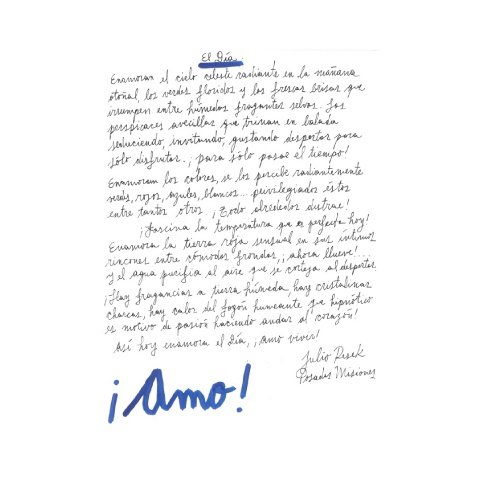 El Día
Enamoran el cielo celeste radiante en la mañana
otoñal, los verdes floridos y las frescas brisas que
irrumpen entre húmedos fragantes selvas. Las
perspicaces avecillas que trinan en balada
seduciendo, invitando, gustando despertar para
sólo disfrutar. ¡para sólo pasar el tiempo!
Enamoran los colores, se los percibe radiantemente
verdes, rojos, azules, blancos... privilegiados éstos
entre tantos otros. ¡Todo alrededor distrae!
¡Fascina la temperatura que es perfecta hoy!
Enamora la tierra roja sensual en sus íntimos
rincones entre cómodas frondas, ¡ahora llueve!...
y el agua purifica el aire que se corteja al despertar.
¡Hay fragancias a tierra húmeda, hay cristalinas
charcas, hay calor del fogón humeante que hipnótico
es motivo de pasión haciendo andar al corazón!
Así hoy enamora el Día, ¡Amo vivir!
Julio Resek
Posadas Misiones
¡Amo!